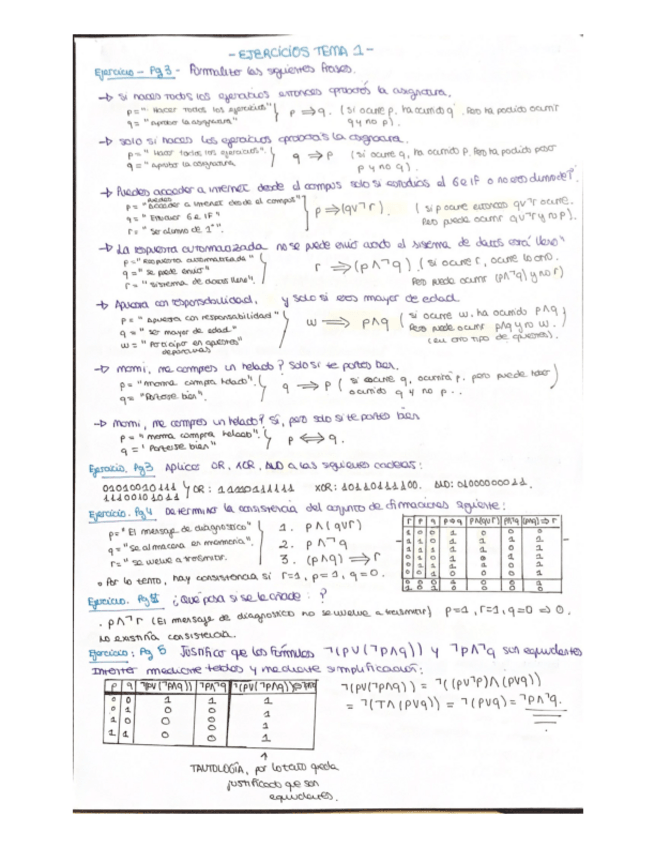 - EJERCICIOS TEMA 1 -
Ejercicio - Pg 3 - Formaliza las siguientes frases.
→ Si haces todos los ejercicios entonces aprobarás la asignatura.
p = "Hacer todos los ejercicios"
q = "aprobar la asignatura"
p ⇒ q. (Si ocurre p, ha ocurrido q. Pero ha podido ocurrir
q y no p).
→ Solo si haces los ejercicios aprobarás la asignatura.
p = "Hacer todos los ejercicios".
q = "aprobar la asignatura"
q ⇒ p (si ocurre q, ha ocurrido p. Pero ha podido pasar
p y no q).
→ Puedes acceder a internet desde el campus solo si estudias el G e IF o no eres alumno de 1º.
p = "acceder a internet desde el campus"
q = "Estudiar G e IF"
r = "Ser alumno de 1º".
p ⇒ (q∨¬r). (si p ocurre entonces q∨¬r ocurre.
Pero puede ocurrir q∨¬r y no p).
→ La respuesta automatizada no se puede enviar cuando el sistema de datos está lleno"
p = "respuesta automatizada"
q = "se puede enviar"
r = "sistema de datos lleno".
r ⇒ (p∧¬q). (si ocurre r, ocurre lo otro.
Pero puede ocurrir (p∧¬q) y no r)
→ Apuesta con responsabilidad, y solo si eres mayor de edad.
p = "Apuesta con responsabilidad"
q = "ser mayor de edad"
w = "Participar en
w ⇒ p∧q (si ocurre w, ha ocurrido p∧q
Pero puede ocurrir p∧q y no w.
(en otro tipo de
→ Mami, me compras un helado? Solo si te portas bien.
p = "mama compra helado".
q = "Portarse bien".
q ⇒ p (si ocurre q, ocurrirá p. pero puede haber
ocurrido q y no p..
→ Mami, me compras un helado? Sí, pero solo si te portas bien
p = "mama compra helado".
q = "Portarse bien"
p ⇔ q.
Ejercicio. Pg 3 Aplicar OR, XOR, AND a las siguientes cadenas:
01010010111
11100101011
OR: XOR: 10110111100. AND: 01000000011.
Ejercicio. Pg 4 Determina la consistencia del conjunto de afirmaciones siguiente:
p = "El mensaje de diagnostico"
q = "se almacena en memoria".
r = "se vuelve a trasmitir.
1. p∧(q∨r)
2. p∧¬q
3. (p∧q) ⇒ r
• Por lo tanto, hay consistencia si r=1, p=1, q=0.
Ejercicio. Pg ¿Qué pasa si se le añade: ?
. p∧¬r (El mensaje de diagnostico no se vuelve a trasmitir) p=1, r=1, q=0 ⇒ 0.
No existiría consistencia.
Ejercicio: Pg 5 Justificar que las fórmulas ¬(p∨(¬p∧q)) y ¬p∧¬q son equivalentes
Intentar mediante tablas y mediante simplificación:
p q ¬(p∨(¬p∧q)) ¬p∧¬q
0 0 1 1 1
0 1 0 0 1
1 0 0 0 1
1 1 0 0 1
¬(p∨(¬p∧q)) = ¬((p∨¬p)∧(p∨q))
= ¬(T∧(p∨q)) = ¬(p∨q) = ¬p∧¬q.
TAUTOLOGÍA, por lo tanto queda
justificado que son
equivalentes.